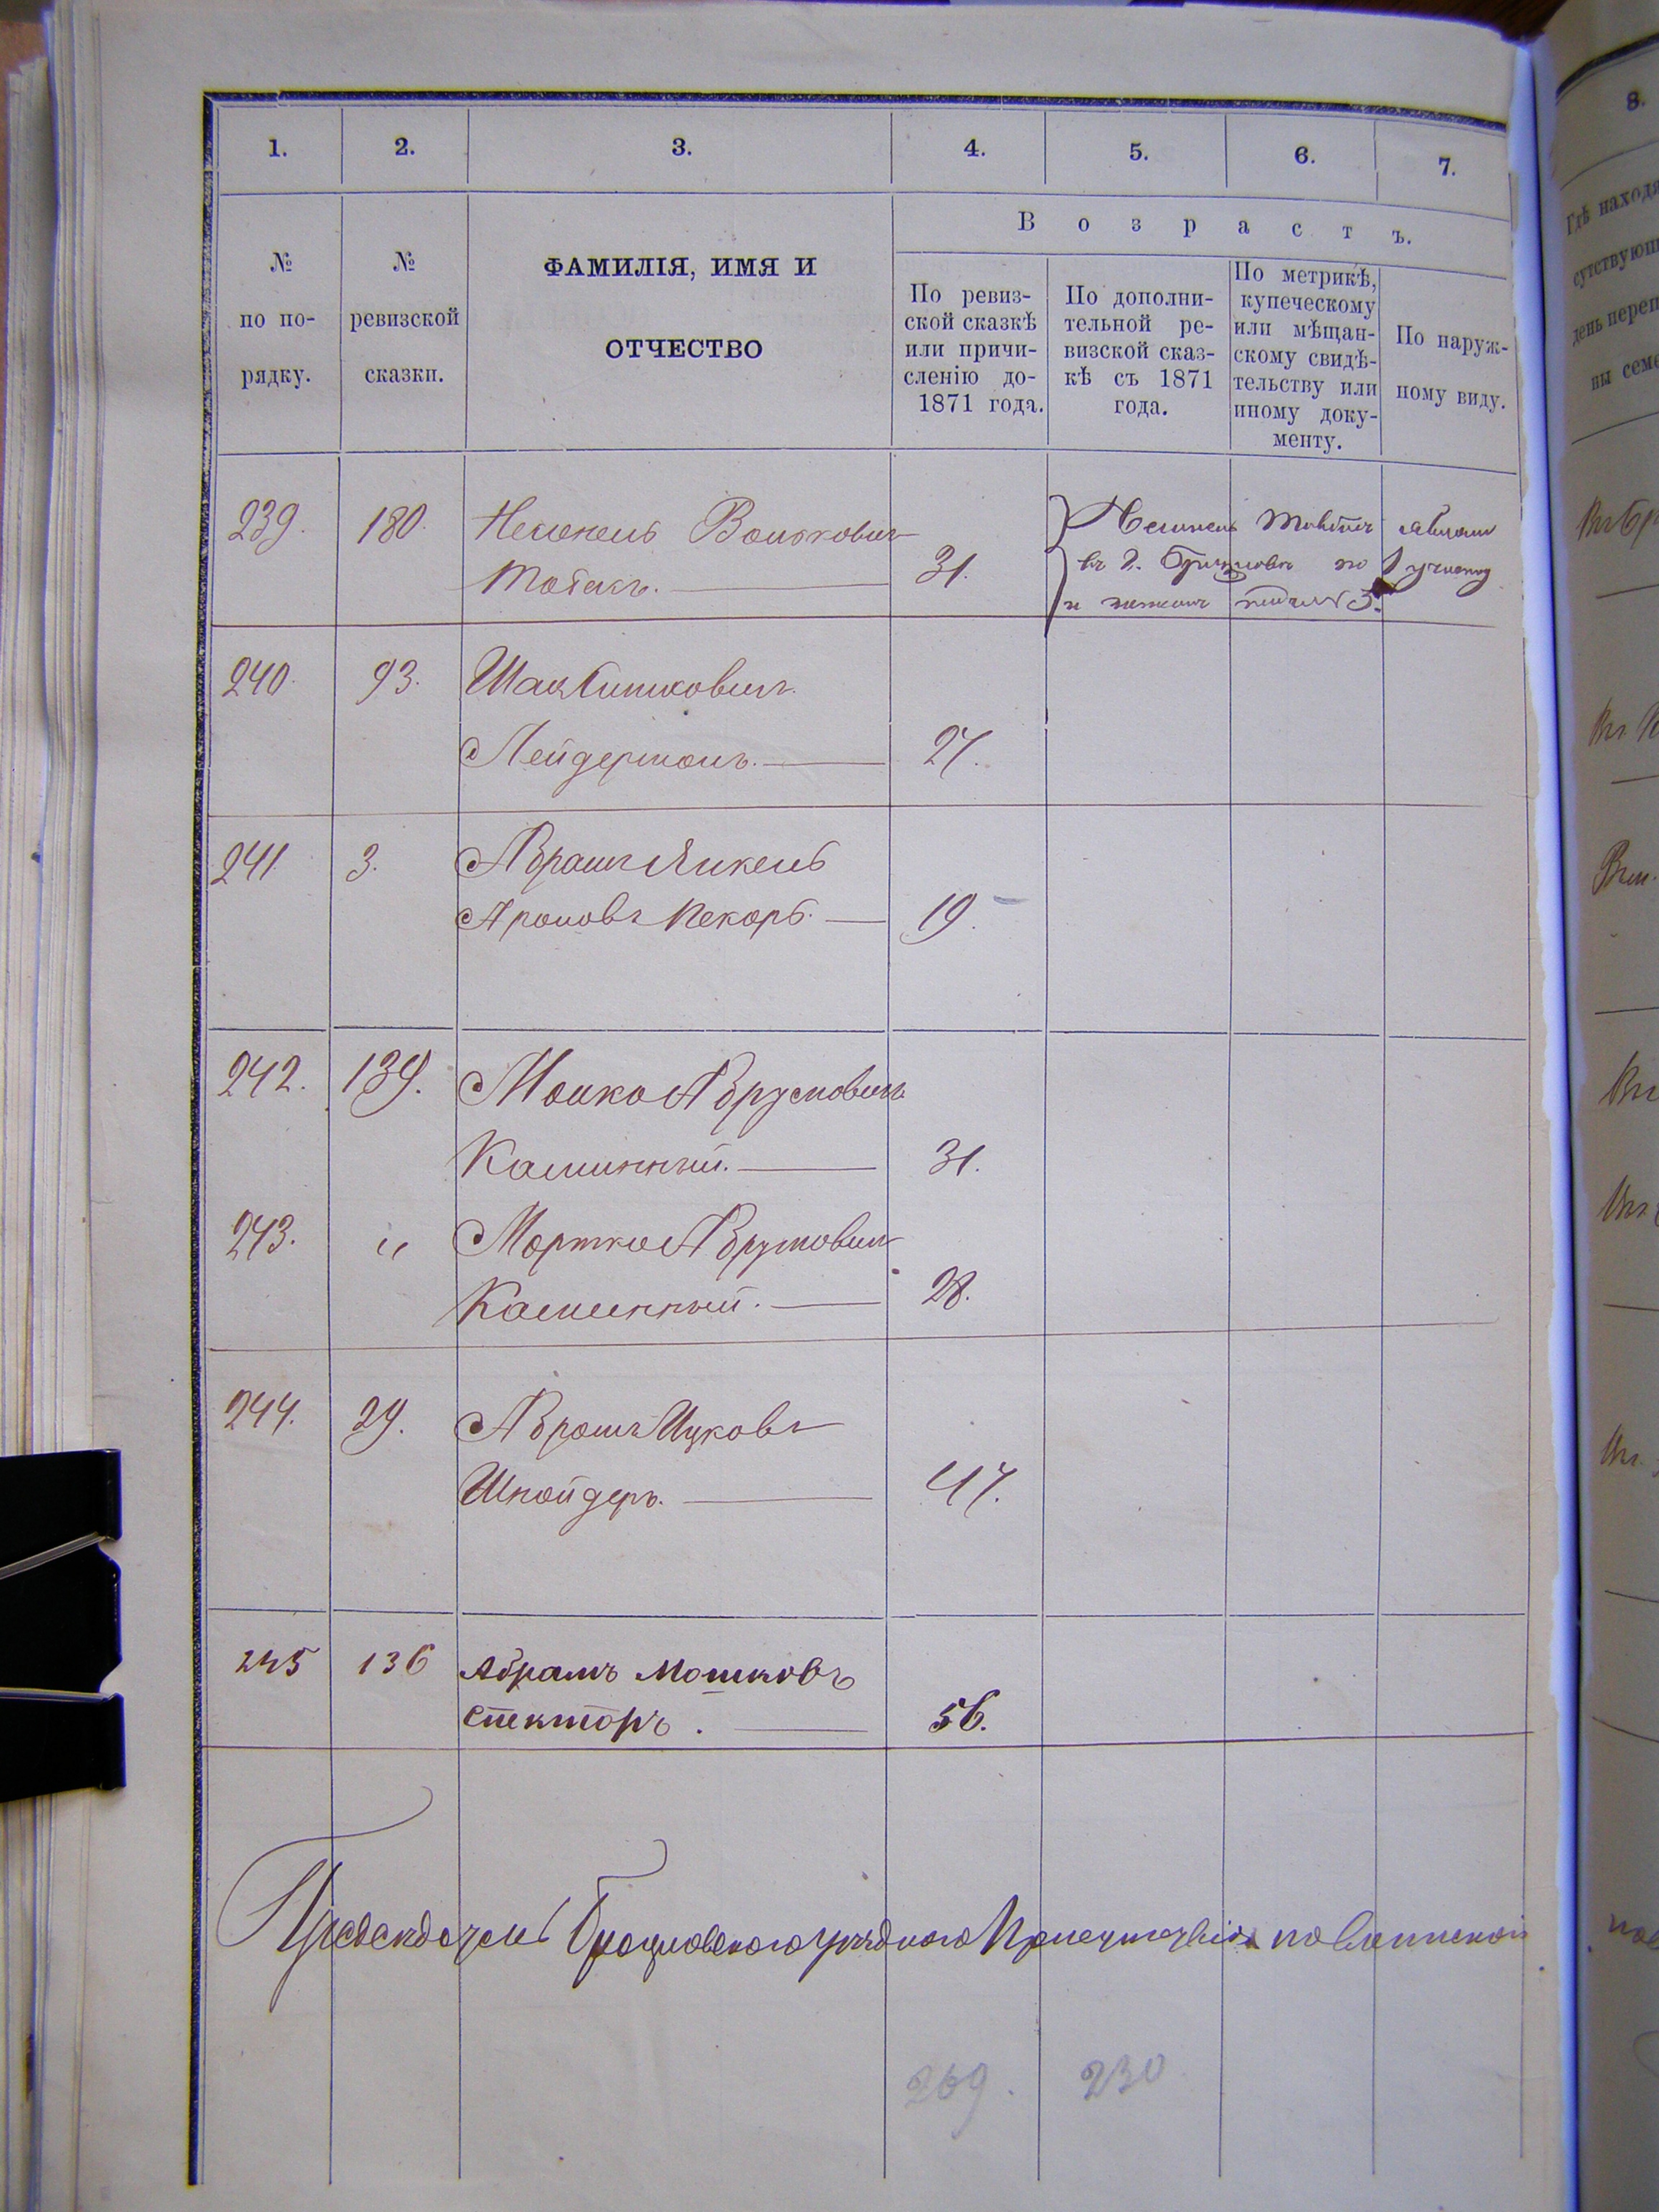 1. 2. 3. 4. 5. 6. 7.
Возрастъ.
№ по по-рядку.
№ ревизской сказки.
ФАМИЛІЯ, ИМЯ И
ОТЧЕСТВО
По ревиз-
ской сказкѣ
или причи-
сленію до-
1871 года.
По дополни-
тельной ре-
визской сказ-
кѣ съ 1871
года.
По метрикѣ,
купеческому
или мѣщан-
скому свидѣ-
тельству или
иному доку-
менту.
По наруж-
ному виду.
239. 180. Вольковичъ
Табакъ. 31.
240. 93. Шая Ицковичъ
Лейдерманъ. 27.
241. 3. Абрамъ Янкель
Ароновъ Пекарь. 19.
242. 139. Мошко Абрумовичъ
Каминный. 31.
243. " Мортко Абрумовичъ
Каминный. 28.
244. 29. Абрамъ Ицковъ
Шнайдеръ. 47.
245 136 Абрамъ Мошковъ
Спекторъ. 56.
Предсѣдатель Брацлавскаго уѣзднаго Присутствія по воинской
269. 230
8.
Гдѣ находя
сутствующ
день переп
ны семе